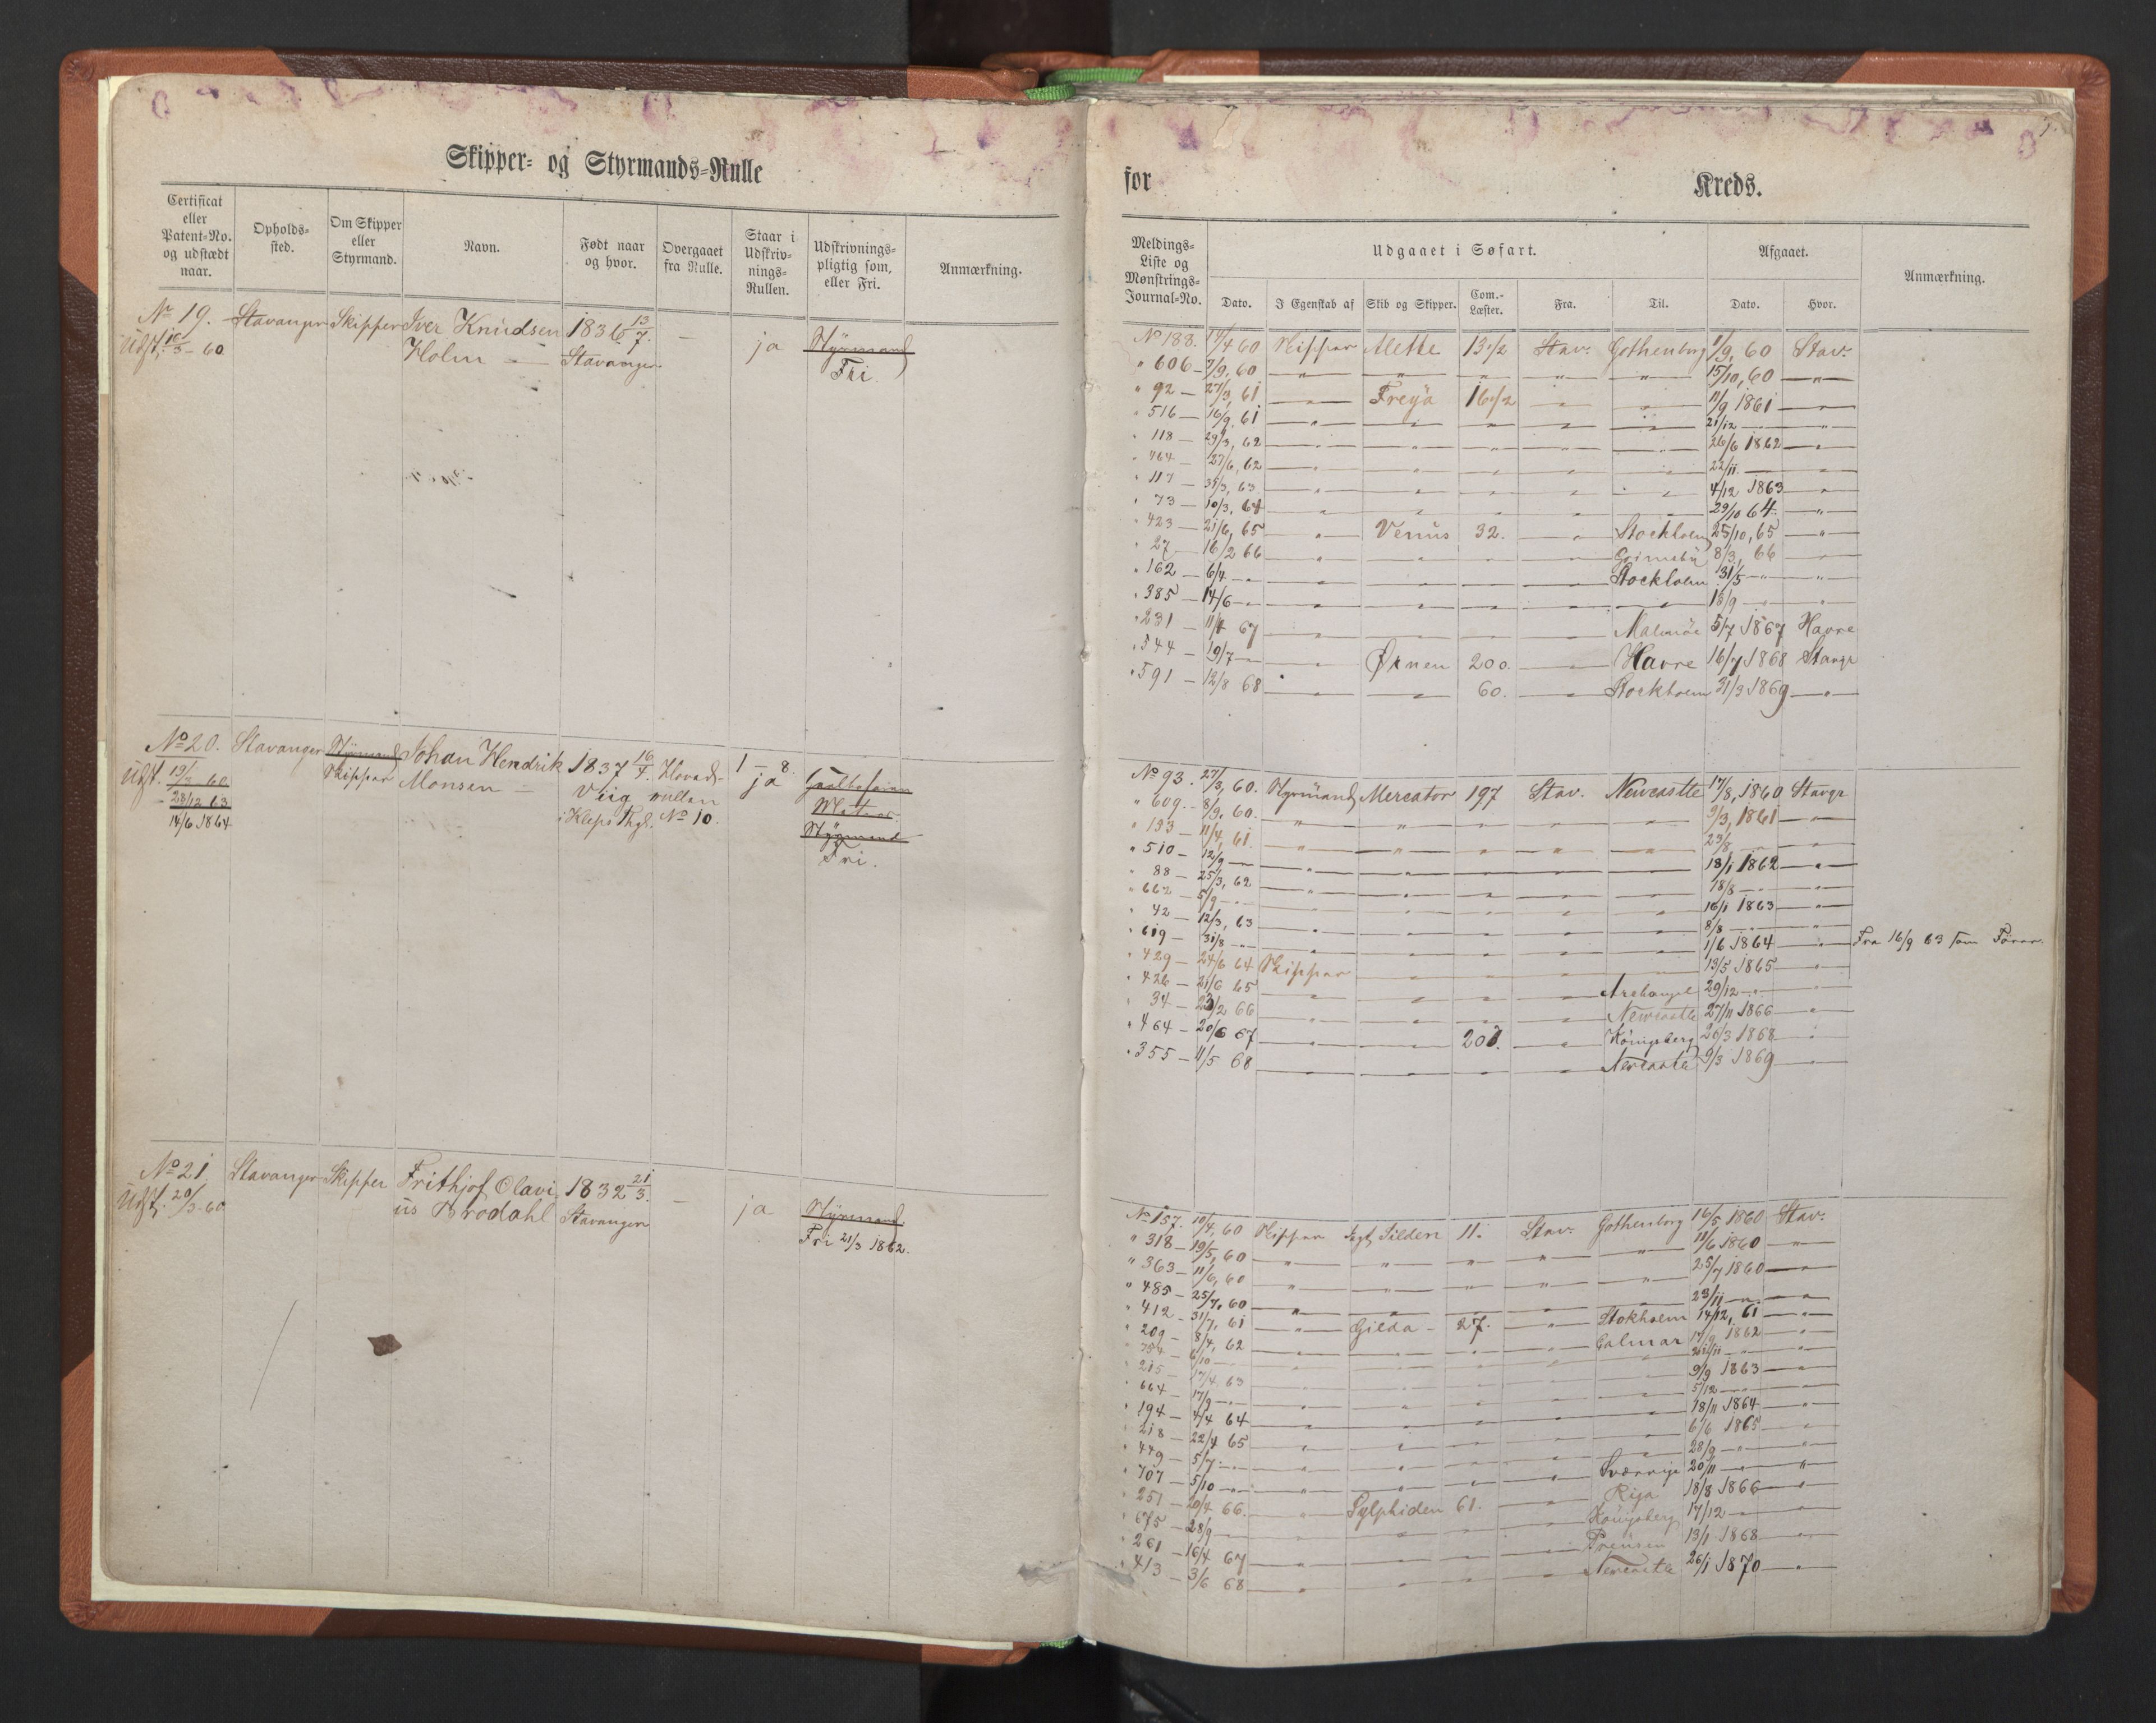 Skipper- og Styrmands-Rulle
Certificat eller Patent-No. og udstædt naar.
Opholds-sted.
Om Skipper eller Styrmand.
Navn.
Født naar og hvor.
Overgaaet fra Rulle.
Staar i Udskriv-nings-Rullen.
Udskrivnings-pligtig som, eller Fri.
Anmærkning.
No 19. Stavanger Skipper Iver Knudsen 1836 13/7. — ja Styrmand
Udst. 3 - 60 Holm — Stavanger Fri
No 20. Stavanger Styrmand Johan Hendrik 1837 16/4. Hoved- 1 — 8.
Udst. 19/3 60 Skipper Monsen — Viig rullen ja
28/12 63 i Kleps Thgl. No 10. Styrmand
14/6 1864 Fri.
No 21. Stavanger Skipper Frithjof Olavi 1832 21/3. — ja Styrmand
Udst. 20/3-60 us Brodahl Stavanger Fri 21/3 1862.
for Kreds.
Meldings-Liste og Mønstrings-Journal-No.
Udgaaet i Søfart.
Dato.
I Egenskab af
Skib og Skipper.
Com.-Læster.
Fra.
Til.
Afgaaet.
Dato.
Hvor.
Anmærkning.
No 188. 14/4 60 Skipper Alette 13 1/2 Stav. Gothenborg 1/9, 60 Stav.
" 606 — 7/9, 60 — " — " — " — " — " 15/10, 60 — " —
" 92 — 27/3, 61 — " — Freya 16 1/2 — " — " 11/9 1861 — " —
" 516 — 16/9. 61 — " — " — " — " — " 21/12 — " —
" 118 — 29/3, 62 — " — " — " — " — " 26/6 1862 — " —
" 464 — 27/6, 62 — " — " — " — " — " 22/11. — " —
" 117 — 31/3, 63 — " — " — " — " — " 4/12 1863 — " —
" 73 — 10/3, 64 — " — " — " — " — " 29/10 64. — " —
" 423 — 21/6, 65 — " — Venus 32. — " — Stockholm 25/10, 65 — " —
" 27 — 16/2 66 — " — " — " — " — Grimsby 8/3, 66 — " —
" 162 — 6/4 — " — " — " — " — " — Stockholm 31/5 — " — " —
" 385 — 14/6 — " — " — " — " — " — " 18/9 — " — " —
" 231 — 11/4 67 — " — " — " — " — Malmöe 5/7 1867 Havre
" 544 — 19/7 — " — Ørnen 200. — " — Havre 16/7 1868 Stavgr
" 591 — 12/8 68 — " — " — 60. — " — Stockholm 31/3 1869 — " —
No 93. 27/3, 60. Styrmand Mercator 197 Stav. Newcastle 17/8, 1860 Stavgr
" 609. — 8/9, 60. — " — " — " — " — " 9/3, 1861 — " —
" 193 — 11/4, 61. — " — " — " — " — " 23/8 — " — " —
" 510 — 12/9 — " — " — " — " — " — " 18/1 1862 — " —
" 88 — 25/3, 62 — " — " — " — " — " 18/8 — " — " —
" 662 — 5/9 — " — " — " — " — " — " 16/1 1863 — " —
" 42 — 12/3, 63 — " — " — " — " — " 8/8 — " — " —
" 619 — 31/8 — " — " — " — " — " — " 1/6 1864 — " — Fra 16/9 63 som Fører.
" 429 — 24/6 64 Skipper — " — " — " — " 13/5 1865 — " —
" 426 — 21/6 65 — " — " — " — " — Archangel 29/12 — " — " —
" 34 — 23/2 66 — " — " — " — " — Newcastle 27/11 1866 — " —
" 464 — 20/6 67 — " — " — 201. — " — Königsberg 26/3 1868 "
" 355 — 11/5 68 — " — " — " — " — Newcastle 9/3 1869 — " —
No 157. 10/4, 60 Skipper Jagt Silden 11. Stav. Gothenborg 16/5 1860 Stav.
" 318 — 19/5, 60 — " — " — " — " — " 11/6 1860 — " —
" 363 — 11/6, 60 — " — " — " — " — " 25/7 1860 — " —
" 485 — 25/7, 60 — " — " — " — " — " 23/11 — " — " —
" 412 — 31/7, 61 — " — Gilda — 27. — " — Stokholm 14/12, 61 — " —
" 209 — 8/4, 62 — " — " — " — " — Calmar 17/9 1862 — " —
" 754 — 6/10 — " — " — " — " — " — " 21/11 — " — " —
" 215 — 17/4 63 — " — " — " — " — " 9/9 1863 — " —
" 664 — 17/9 — " — " — " — " — " — " 5/12 — " — " —
" 194 — 4/4 64 — " — " — " — " — " 18/11 1864 — " —
" 218 — 22/4 65 — " — " — " — " — " 6/6 1865 — " —
" 449 — 5/7 — " — " — " — " — " — " 28/9 — " — " —
" 707 — 5/10 — " — " — " — " — " — Sverrige 20/11 — " — " —
" 251 — 20/4 66. — " — Sylphiden 61. — " — Riga 18/8 1866 — " —
" 675 — 28/9 — " — " — " — " — " — Königsberg 17/12 — " —
" 261 — 16/4 67 — " — " — " — " — Preusen 13/1 1868 — " —
" 413 — 3/6 68 — " — " — " — " — Newcastle 26/1 1870 — " —